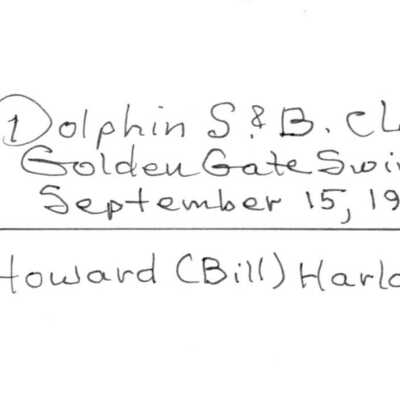 ① Dolphin S & B. CL
Golden Gate Swi
September 15, 19
Howard (Bill) Harlo